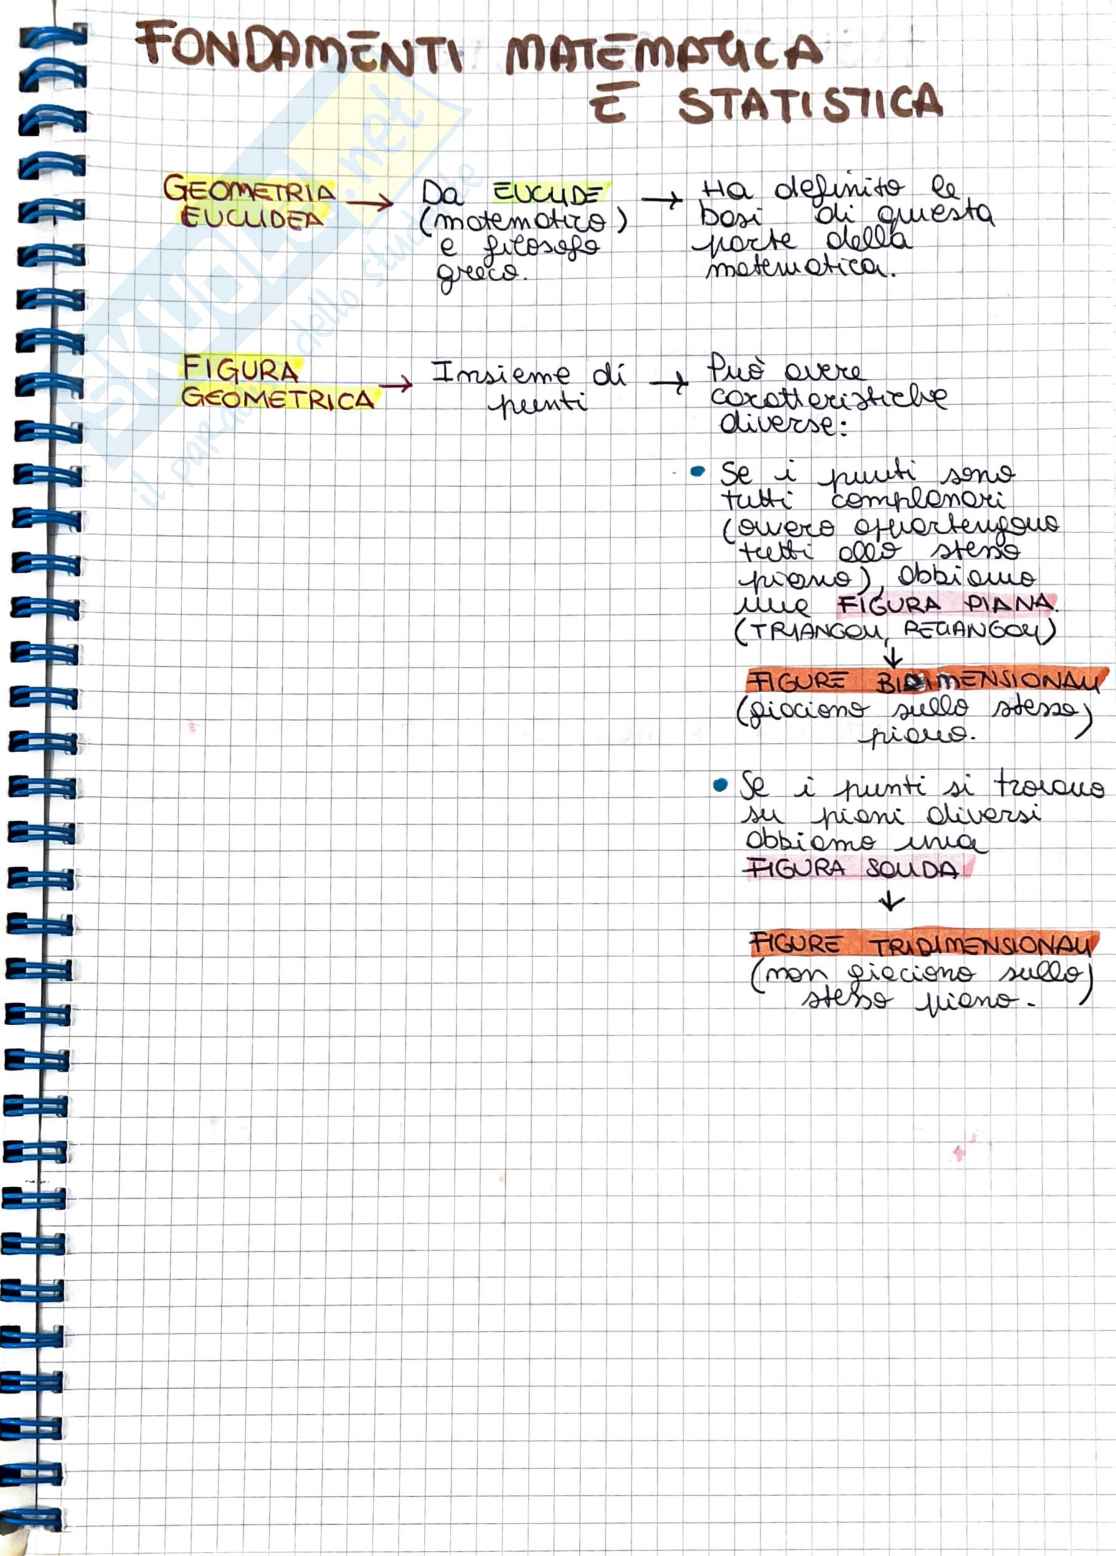 FONDAMENTI MATEMATICA
E STATISTICA
GEOMETRIA
EUCLIDEA → Da EUCLIDE
(matematico)
e filosofo
greco. → Ha definito le
basi di questa
parte della
matematica.
FIGURA
GEOMETRICA → Insieme di
punti → Può avere
caratteristiche
diverse:
• Se i punti sono
tutti complanari
(ovvero appartengono
tutti allo stesso
piano), abbiamo
una FIGURA PIANA.
(TRIANGOLI, RETTANGOLI)
↓
FIGURE BIDIMENSIONALI
(giaciono sullo stesso)
piano.
• Se i punti si trovano
su piani diversi
abbiamo una
FIGURA SOLIDA
↓
FIGURE TRIDIMENSIONALI
(non giaciono sullo)
stesso piano.
skuola.net
il paradiso dello studente